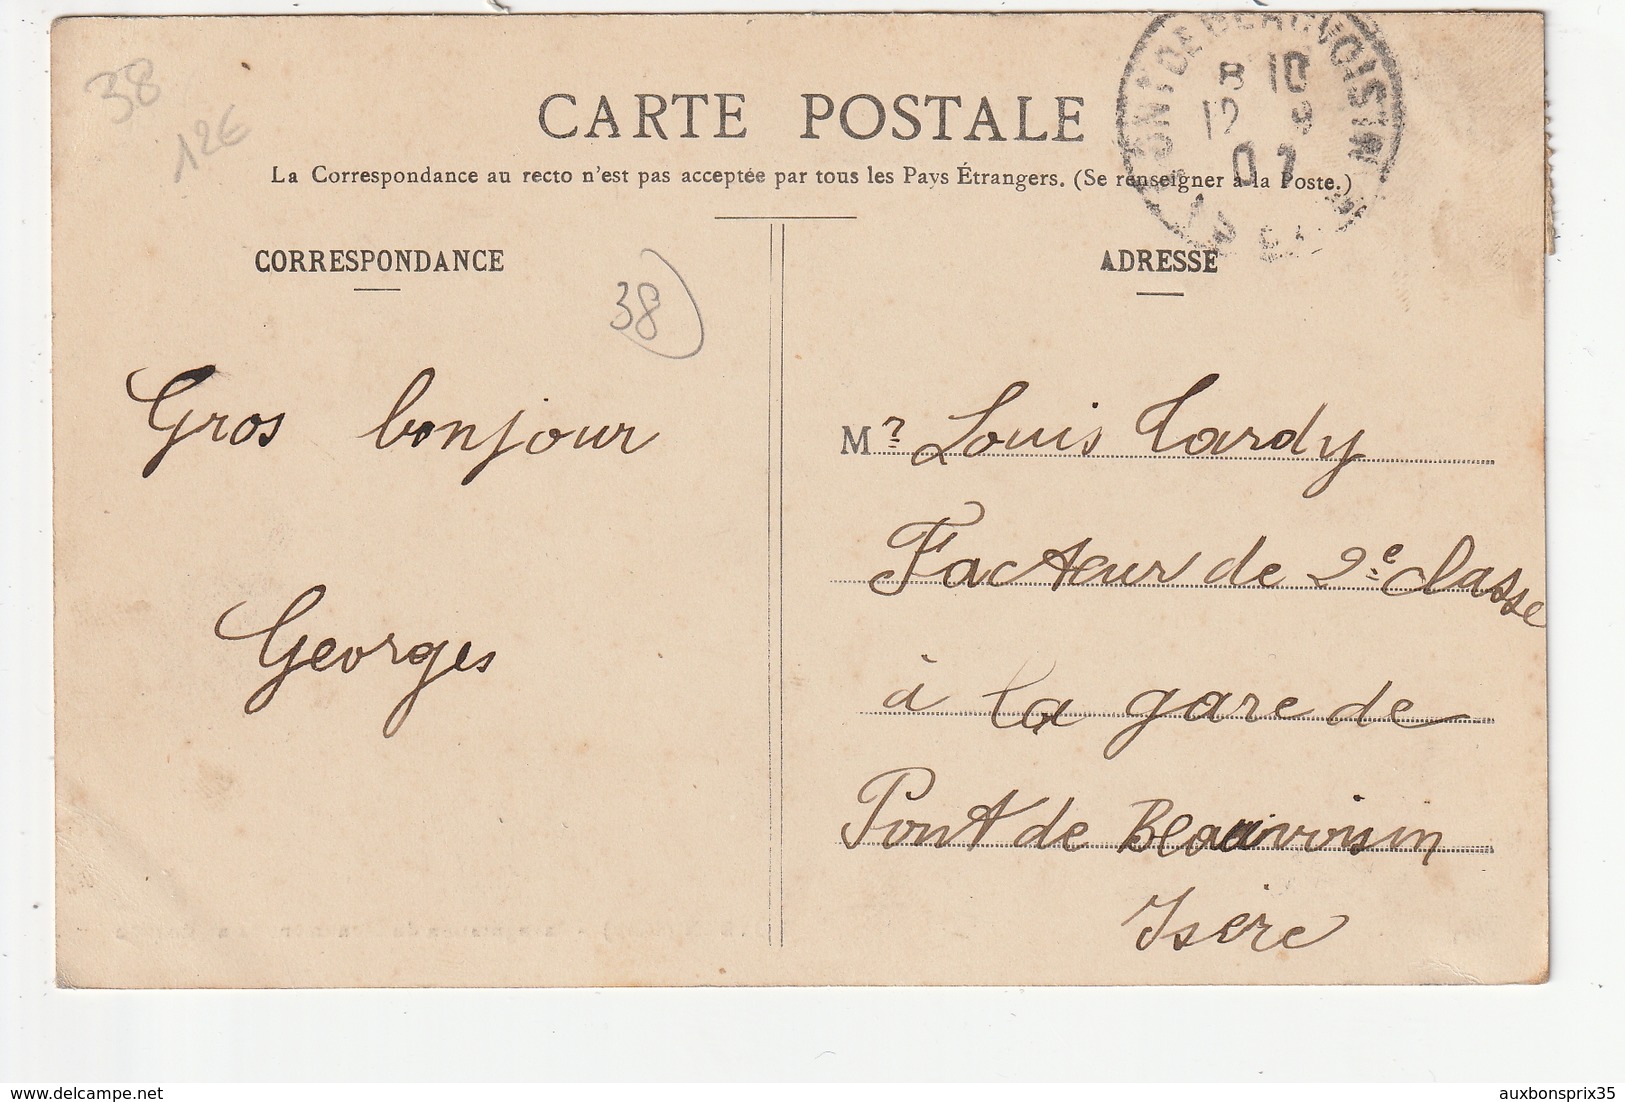 38
12€
CARTE POSTALE
La Correspondance au recto n'est pas acceptée par tous les Pays Étrangers. (Se renseigner à la Poste.)
PONT DE BEAUVOISIN
8 10
12 9
07
CORRESPONDANCE
38
ADRESSE
Gros bonjour
Georges
Mr Louis Tardy
Facteur de 2e classe
à la gare de
Pont de Beauvoisin
Isère
delcampe.net
auxbonsprix35